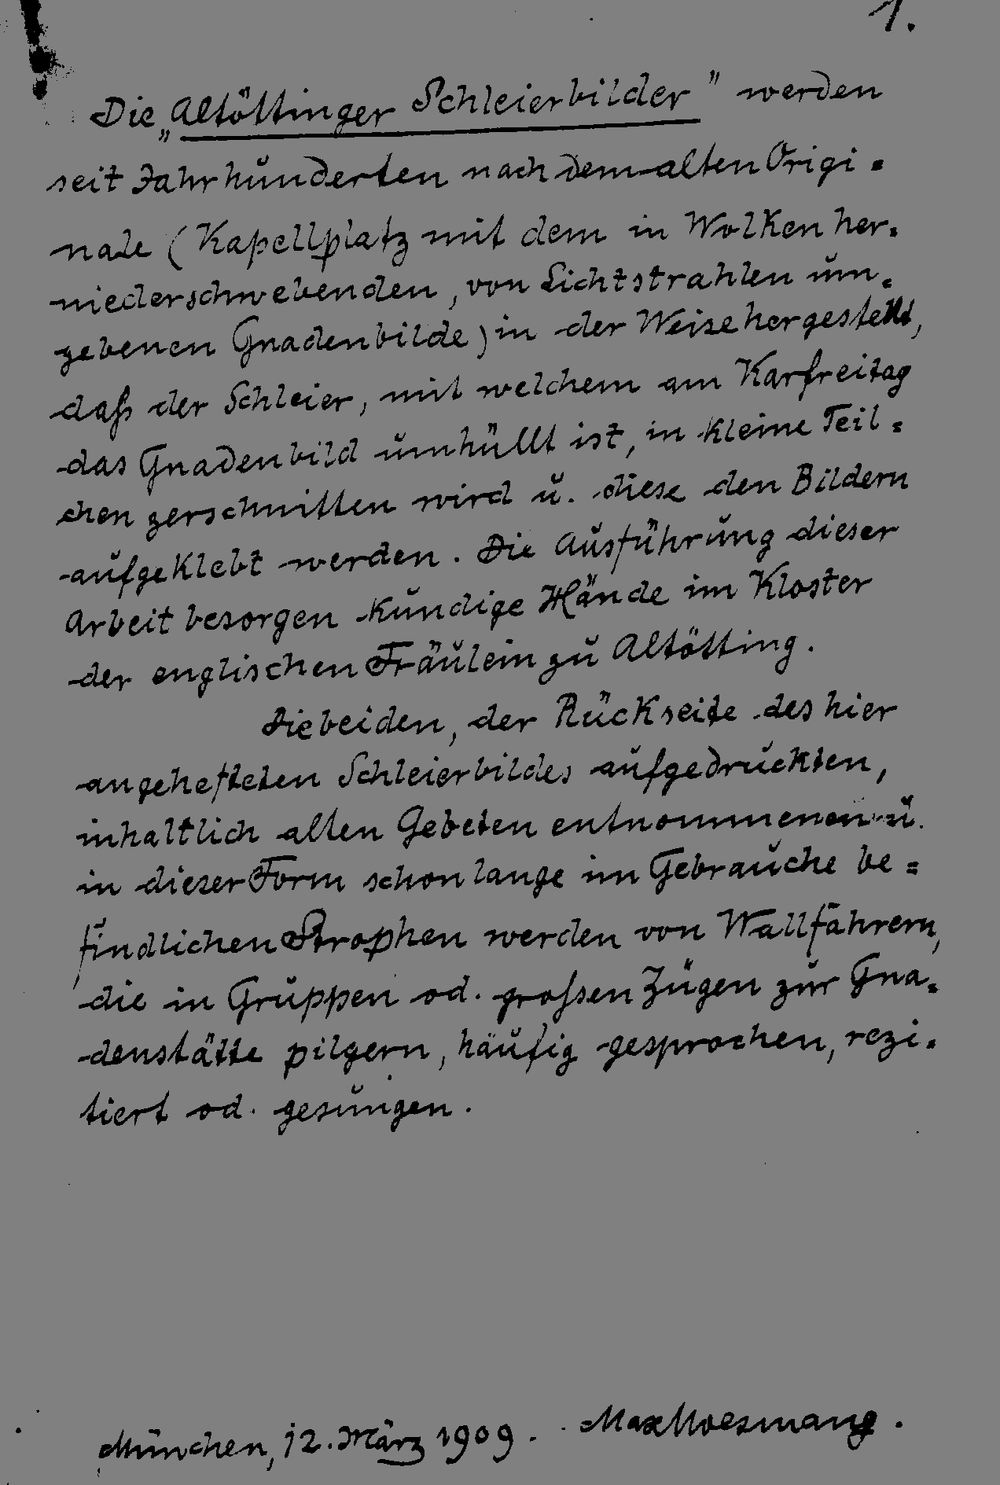 1.
Die „Altöttinger Schleierbilder" werden
seit Jahrhunderten nach dem alten Origi=
nale (Kapellplatz mit dem in Wolken her=
niederschwebenden, von Lichtstrahlen um=
gebenen Gnadenbilde) in der Weise hergestellt,
daß der Schleier, mit welchem am Karfreitag
das Gnadenbild umhüllt ist, in kleine Teil=
chen zerschnitten wird u. diese den Bildern
aufgeklebt werden. Die Ausführung dieser
Arbeit besorgen kundige Hände im Kloster
der englischen Fräulein zu Altötting.
Die beiden, der Rückseite des hier
angehefteten Schleierbildes aufgedruckten,
inhaltlich alten Gebeten entnommenen u.
in dieser Form schon lange im Gebrauche be=
findlichen Strophen werden von Wallfahrern,
die in Gruppen od. großen Zügen zur Gna=
denstätte pilgern, häufig gesprochen, rezi=
tiert od. gesungen.
München, 12. März 1909. Max Moesmang.